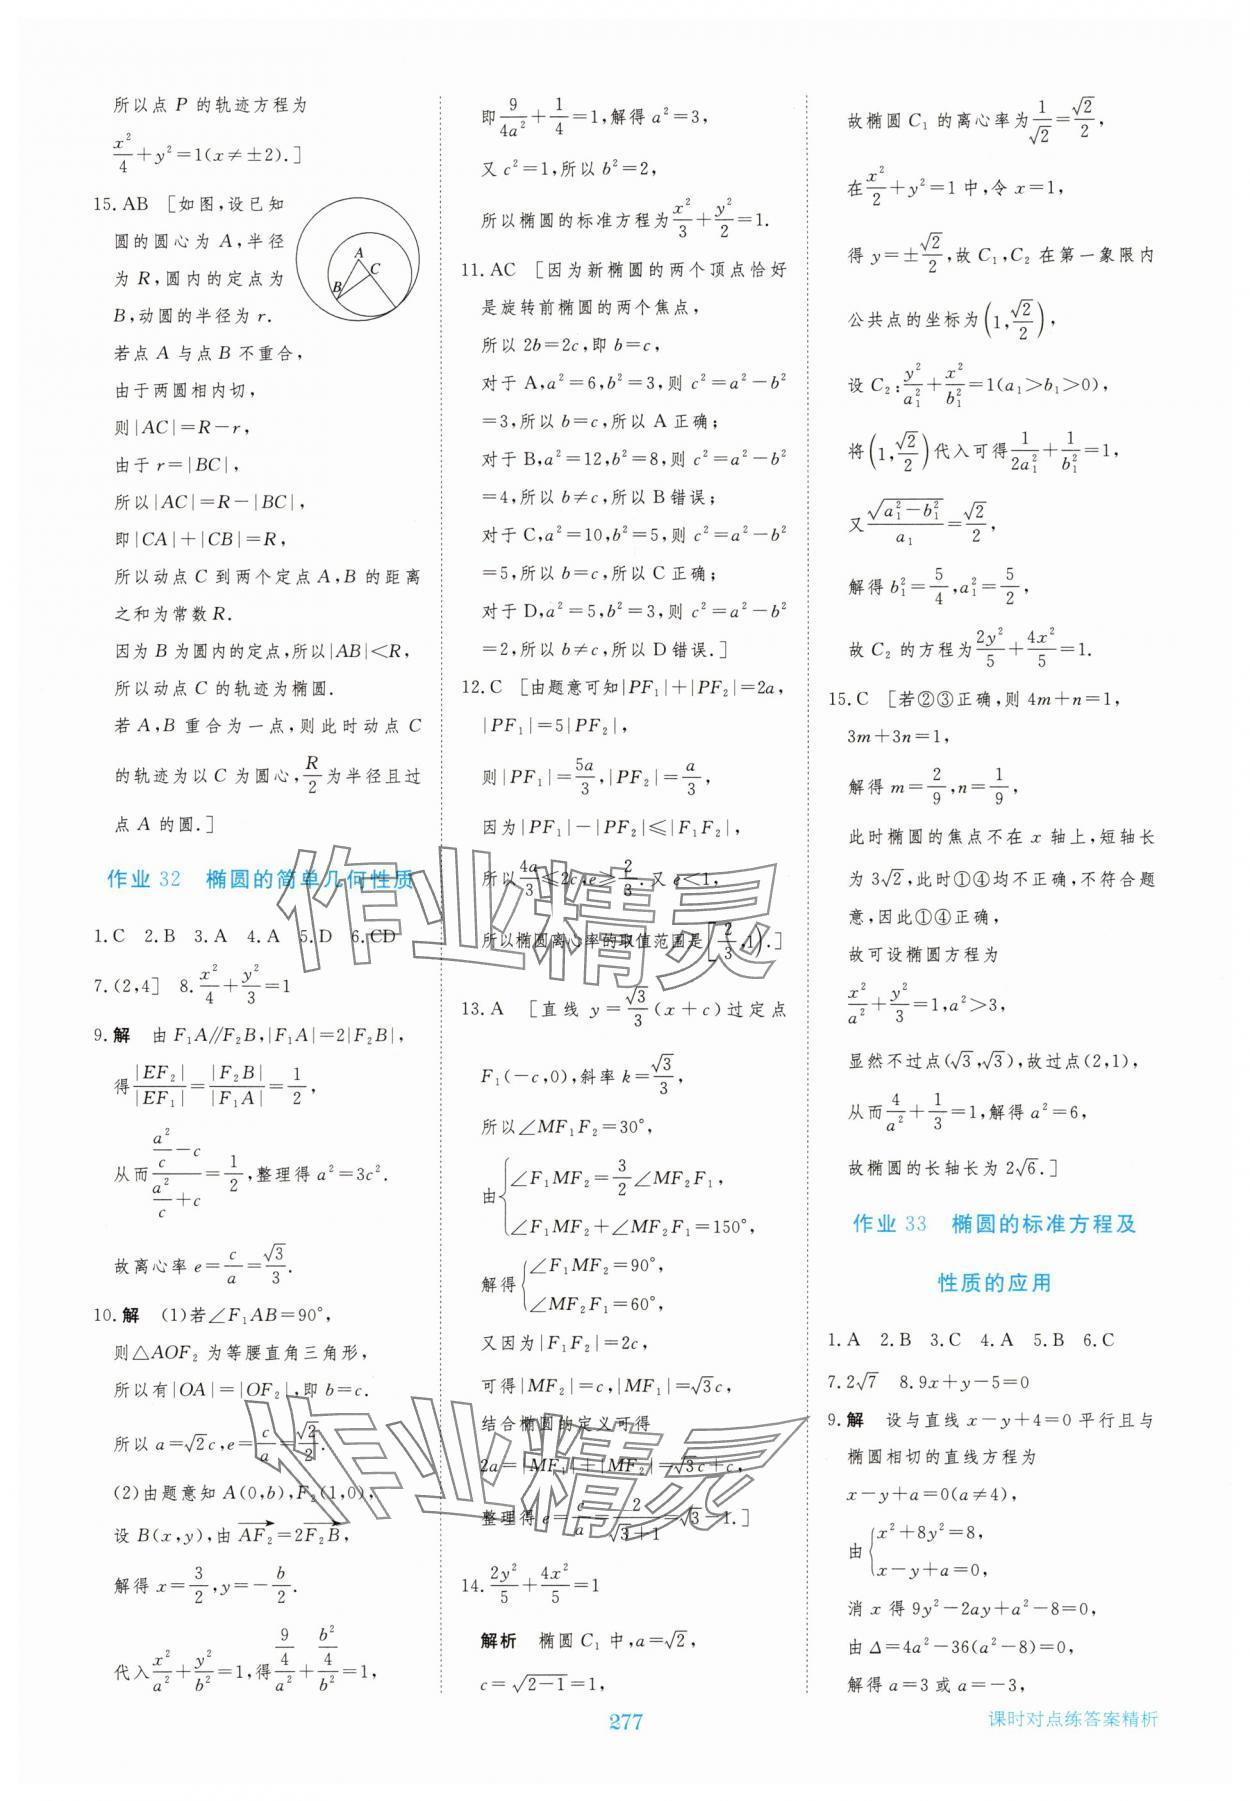 所以点 P 的轨迹方程为
x²/4+y²=1(x≠±2).]
15.AB [如图,设已知
圆的圆心为 A,半径
为 R,圆内的定点为
B,动圆的半径为 r.
若点 A 与点 B 不重合,
由于两圆相内切,
则|AC|=R-r,
由于 r=|BC|,
所以|AC|=R-|BC|,
即|CA|+|CB|=R,
所以动点 C 到两个定点 A,B 的距离
之和为常数 R.
因为 B 为圆内的定点,所以|AB|<R,
所以动点 C 的轨迹为椭圆.
若 A,B 重合为一点,则此时动点 C
的轨迹为以 C 为圆心,R/2为半径且过
点 A 的圆.]
A
C
B
作业 32 椭圆的简单几何性质
1.C 2.B 3.A 4.A 5.D 6.CD
7.(2,4] 8.x²/4+y²/3=1
9.解 由 F₁A//F₂B,|F₁A|=2|F₂B|,
得|EF₂|/|EF₁|=|F₂B|/|F₁A|=1/2,
从而(a²/c-c)/(a²/c+c)=1/2,整理得 a²=3c².
故离心率 e=c/a=√3/3.
10.解 (1)若∠F₁AB=90°,
则△AOF₂ 为等腰直角三角形,
所以有|OA|=|OF₂|,即 b=c.
所以 a=√2c,e=c/a=√2/2.
(2)由题意知 A(0,b),F₂(1,0),
设 B(x,y),由 AF₂→=2F₂B→,
解得 x=3/2,y=-b/2.
代入x²/a²+y²/b²=1,得(9/4)/a²+(b²/4)/b²=1,
即9/(4a²)+1/4=1,解得 a²=3,
又 c²=1,所以 b²=2,
所以椭圆的标准方程为x²/3+y²/2=1.
11.AC [因为新椭圆的两个顶点恰好
是旋转前椭圆的两个焦点,
所以 2b=2c,即 b=c,
对于 A,a²=6,b²=3,则 c²=a²-b²
=3,所以 b=c,所以 A 正确;
对于 B,a²=12,b²=8,则 c²=a²-b²
=4,所以 b≠c,所以 B 错误;
对于 C,a²=10,b²=5,则 c²=a²-b²
=5,所以 b=c,所以 C 正确;
对于 D,a²=5,b²=3,则 c²=a²-b²
=2,所以 b≠c,所以 D 错误.]
12.C [由题意可知|PF₁|+|PF₂|=2a,
|PF₁|=5|PF₂|,
则|PF₁|=5a/3,|PF₂|=a/3,
因为|PF₁|-|PF₂|≤|F₁F₂|,
所以4a/3≤2c,e≥2/3.又 e<1,
所以椭圆离心率的取值范围是[2/3,1).]
13.A [直线 y=√3/3(x+c)过定点
F₁(-c,0),斜率 k=√3/3,
所以∠MF₁F₂=30°,
由{∠F₁MF₂=3/2∠MF₂F₁,
∠F₁MF₂+∠MF₂F₁=150°,
解得{∠F₁MF₂=90°,
∠MF₂F₁=60°,
又因为|F₁F₂|=2c,
可得|MF₂|=c,|MF₁|=√3c,
结合椭圆的定义可得
2a=|MF₁|+|MF₂|=√3c+c,
整理得 e=c/a=2/(√3+1)=√3-1.]
14.2y²/5+4x²/5=1
解析 椭圆 C₁ 中,a=√2,
c=√(2-1)=1,
故椭圆 C₁ 的离心率为1/√2=√2/2,
在x²/2+y²=1 中,令 x=1,
得 y=±√2/2,故 C₁,C₂ 在第一象限内
公共点的坐标为(1,√2/2),
设 C₂:y²/a₁²+x²/b₁²=1(a₁>b₁>0),
将(1,√2/2)代入可得1/(2a₁²)+1/b₁²=1,
又√(a₁²-b₁²)/a₁=√2/2,
解得 b₁²=5/4,a₁²=5/2,
故 C₂ 的方程为2y²/5+4x²/5=1.
15.C [若②③正确,则 4m+n=1,
3m+3n=1,
解得 m=2/9,n=1/9,
此时椭圆的焦点不在 x 轴上,短轴长
为 3√2,此时①④均不正确,不符合题
意,因此①④正确,
故可设椭圆方程为
x²/a²+y²/3=1,a²>3,
显然不过点(√3,√3),故过点(2,1),
从而4/a²+1/3=1,解得 a²=6,
故椭圆的长轴长为 2√6.]
作业 33 椭圆的标准方程及
性质的应用
1.A 2.B 3.C 4.A 5.B 6.C
7.2√7 8.9x+y-5=0
9.解 设与直线 x-y+4=0 平行且与
椭圆相切的直线方程为
x-y+a=0(a≠4),
由{x²+8y²=8,
x-y+a=0,
消 x 得 9y²-2ay+a²-8=0,
由 Δ=4a²-36(a²-8)=0,
解得 a=3 或 a=-3,
277
课时对点练答案精析
作业精灵
作业精灵